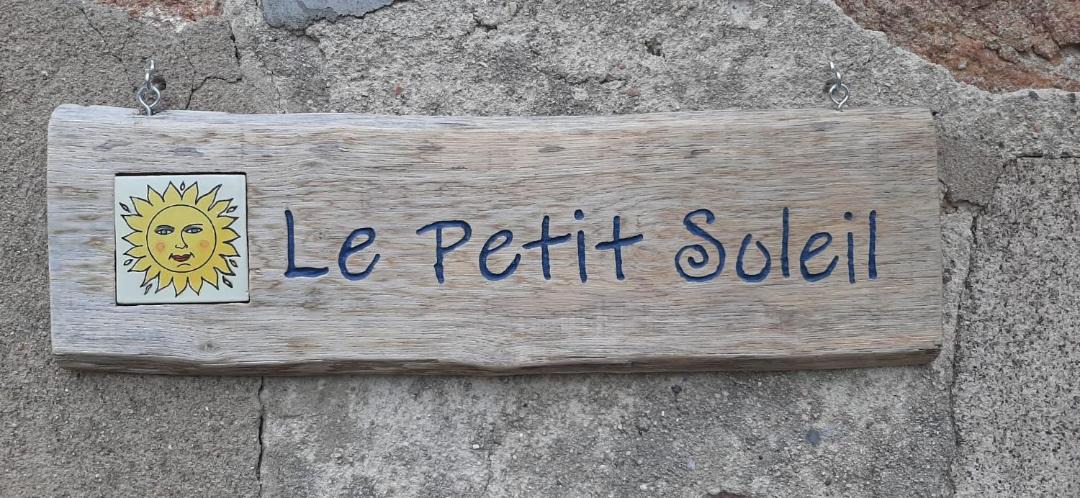 Le Petit Soleil